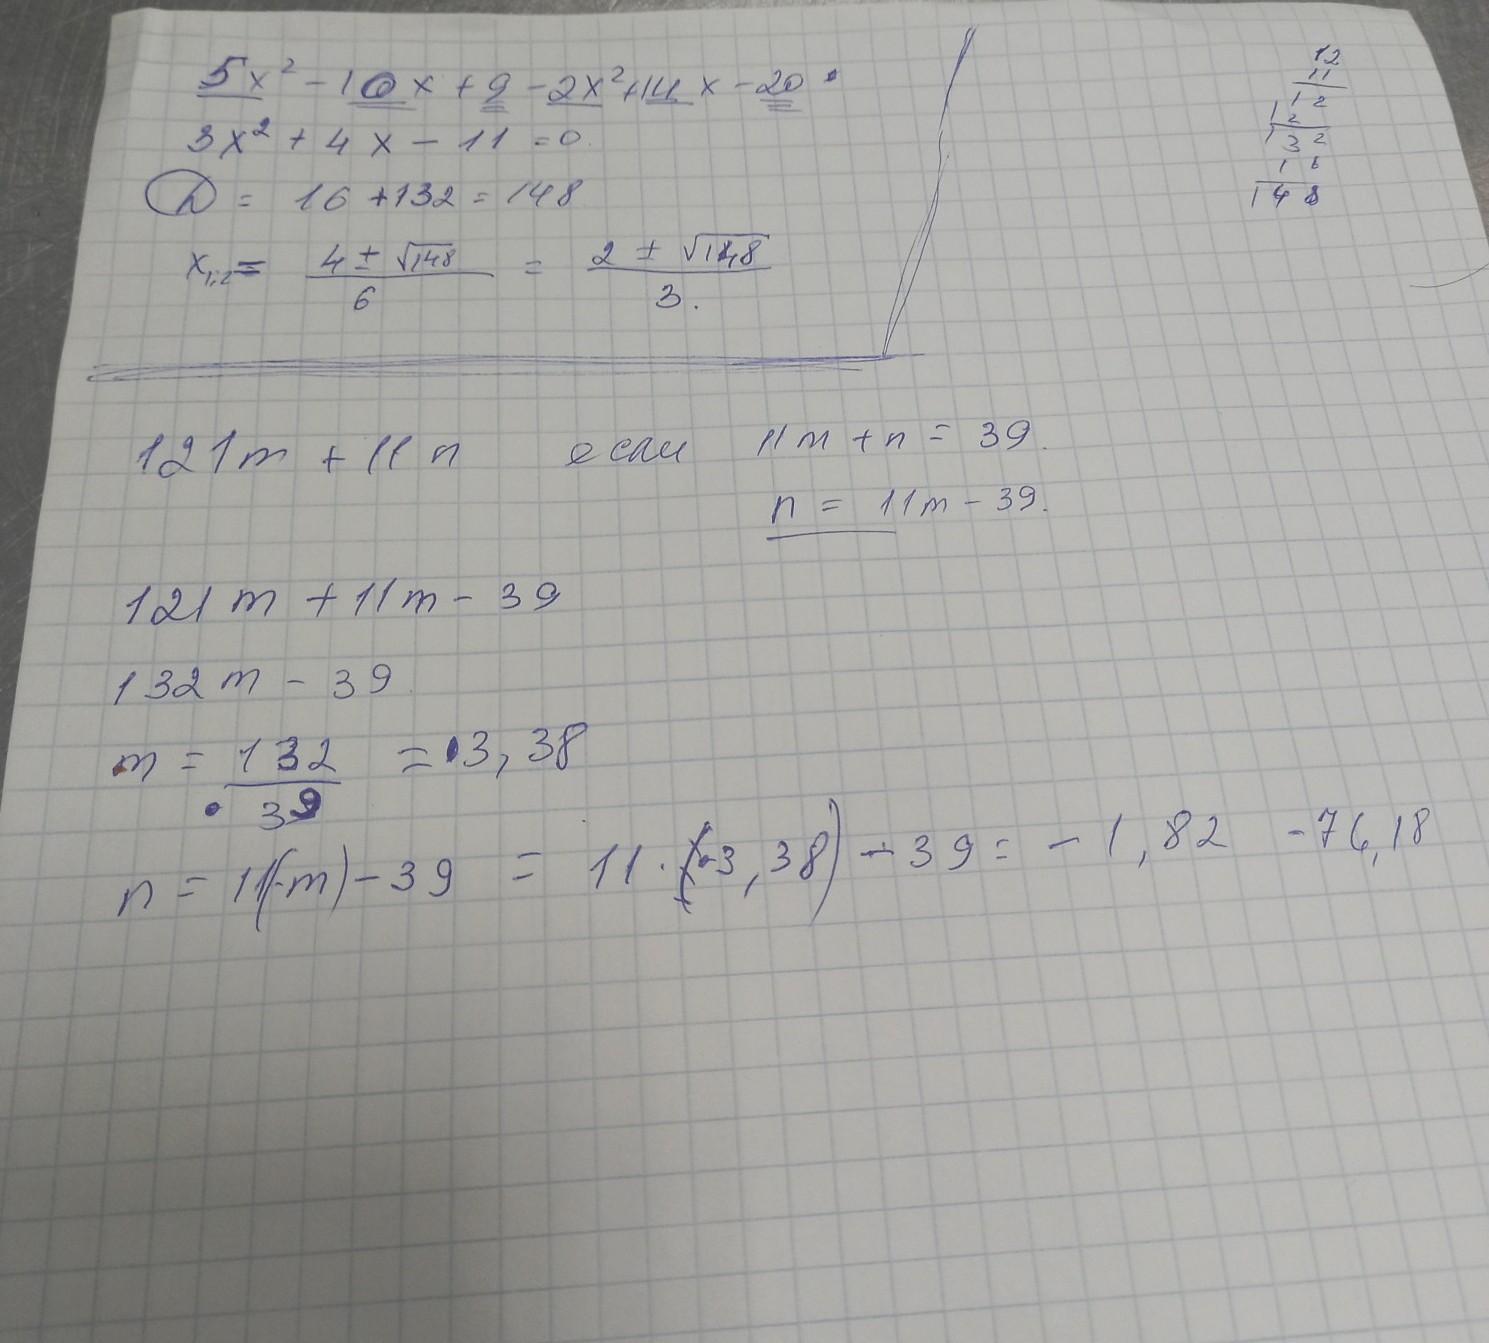 5x² - 10x + 9 - 2x² + 14x - 20
3x² + 4x - 11 = 0.
D = 16 + 132 = 148
x₁,₂ = (4 ± √148)/6 = (2 ± √148)/3.
12
11
12
12
132
16
148
121m + 11n если 11m + n = 39.
n = 11m - 39.
121m + 11m - 39
132m - 39
m = 132/39 = 3,38
n = 11(-m) - 39 = 11 · (-3,38) - 39 = - 1,82 - 76,18